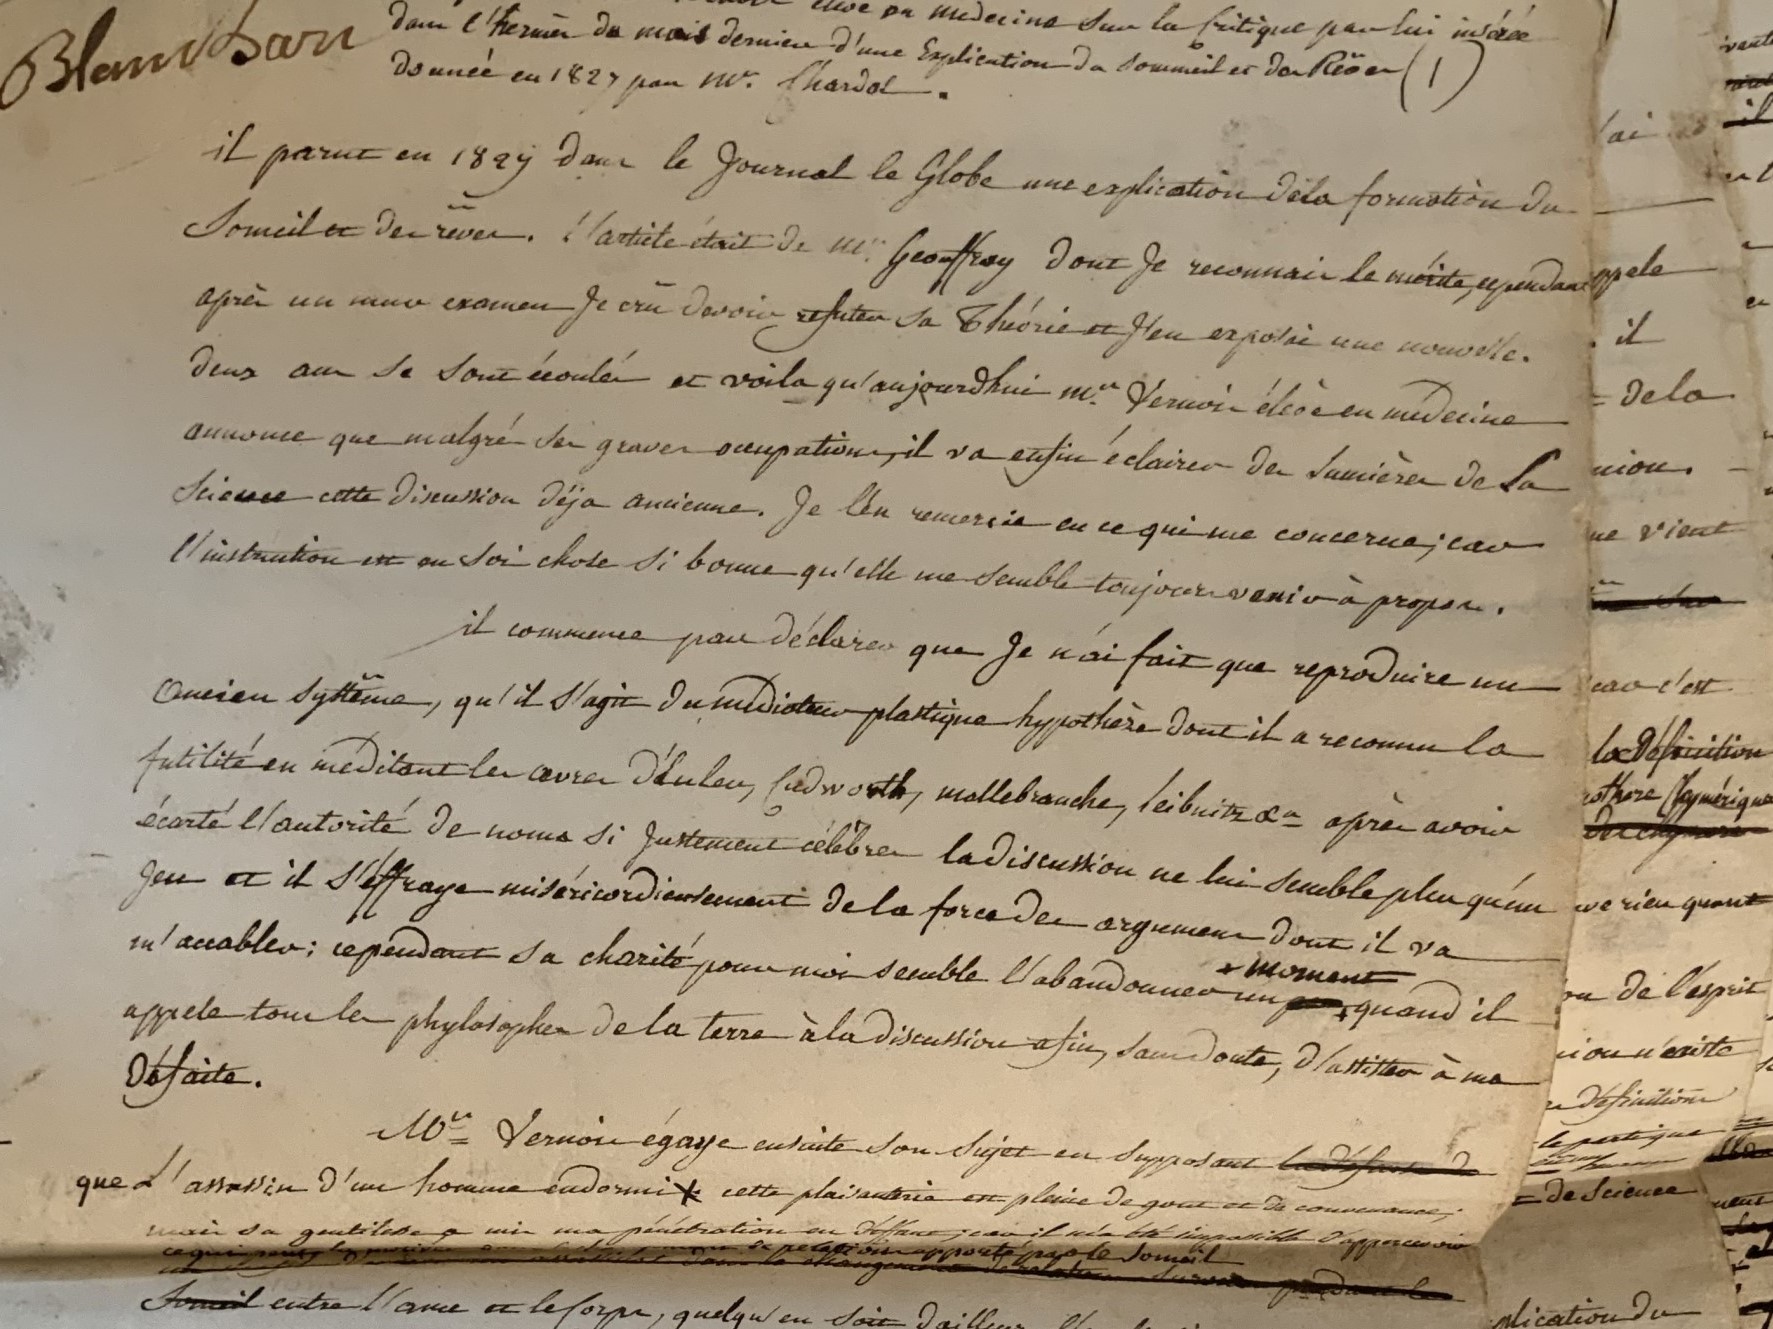 Blanchard
élève en médecine sur la critique par lui insérée
dans l'hermès du mois dernier d'une Explication du sommeil et des Rêves (1)
donnée en 1827 par Mr. Chardel.
il parut en 1827 dans le Journal le Globe une explication dela formation du
Someil et des rêves. l'article était de Mr. Geoffroy dont Je reconnais le mérite, cependant
après un mur examen Je crû devoir refuter sa Théorie et J'en exposai une nouvelle.
deux ans se sont écoulés et voila qu'aujourdhui Mr. Vernois élève en médecine
annonce que malgré ses graves ocupations, il va enfin éclairer des lumières de La
Science cette discussion déja ancienne. Je l'en remercie en ce qui me concerne; car
l'instruction est en soi chose si bonne qu'elle me semble toujours venir à propos.
il commence par déclarer que Je n'ai fait que reproduire un
Ancien systême, qu'il s'agit du médiateur plastique hypothèse dont il a reconnu la
futilité en méditant les œuvres d'Euler, Cudworth, mallebranche, leibnitz &a après avoir
écarté l'autorité de noms si Justement célèbres la discussion ne lui semble plus qu'un
Jeu et il s'effraye miséricordieusement de la force des argumens dont il va
m'accabler; cependant sa charité pour moi semble l'abandonner un quand il
moment
appele tous les phylosophes de la terre à la discussion afin, sans doute, d'assister à ma
Défaite.
Mr. Vernois égaye ensuite son sujet en supposant
que L'assassin d'un homme endormi cette plaisanterie est pleine de gout et de convenance;
mais sa gentilesse a mis ma pénétration en deffaut; car il m'a été impossible d'appercevoir
relation apporté par le Someil
Someil entre l'ame et le Corps, quelqu'en soit d'ailleurs
'ai
ppele
il
= de la
nion.
ne vient
car c'est
la Définition
ve rien quant
on de l'esprit
ion n'existe
Définition
= de Science
plication du